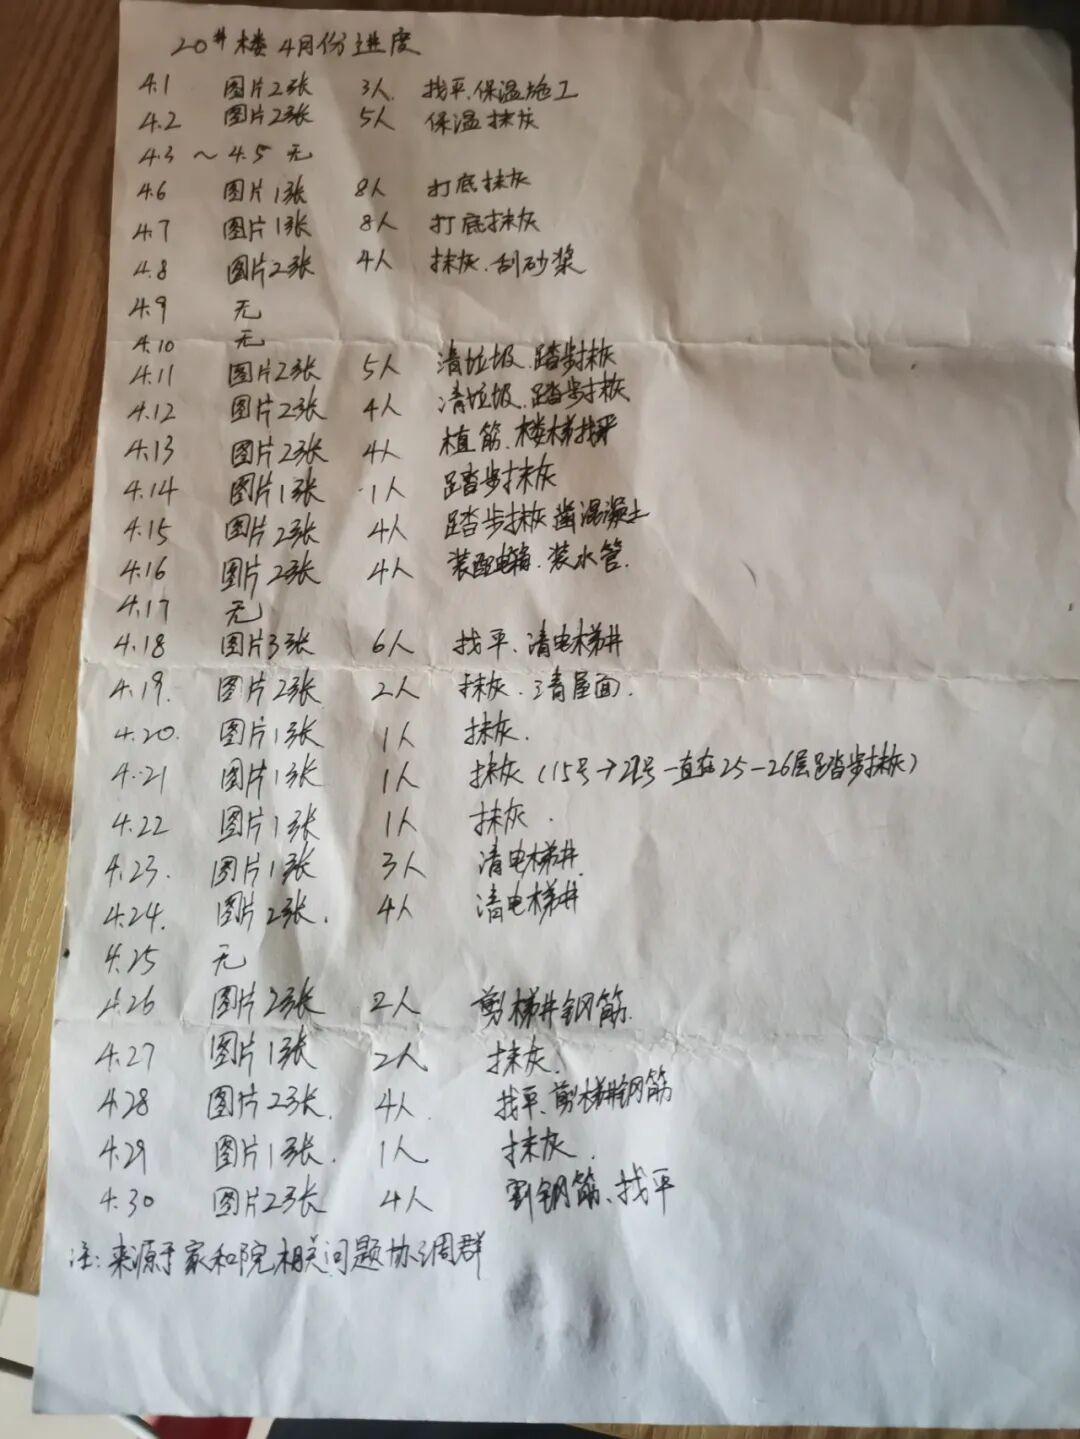 20# 楼 4月份进度
4.1 图片2张 3人. 找平.保温施工
4.2 图片2张 5人 保温抹灰
4.3 ～ 4.5 无
4.6 图片1张 8人 打底抹灰
4.7 图片1张 8人 打底抹灰
4.8 图片2张 4人 抹灰.刮砂浆
4.9 无
4.10 无
4.11 图片2张 5人 清垃圾.踏步抹灰
4.12 图片2张 4人 清垃圾.踏步抹灰
4.13 图片2张 4人 植筋.楼梯找平
4.14 图片1张 1人 踏步抹灰
4.15 图片2张 4人 踏步抹灰 凿混凝土
4.16 图片2张 4人 装配电箱.装水管.
4.17 无
4.18 图片3张 6人 找平、清电梯井
4.19. 图片2张 2人 抹灰.清屋面.
4.20. 图片1张 1人 抹灰.
4.21 图片1张 1人 抹灰(15号→21号一直在25-26层踏步抹灰)
4.22 图片1张 1人 抹灰.
4.23. 图片1张 3人 清电梯井.
4.24. 图片2张. 4人 清电梯井
4.25 无
4.26 图片2张 2人 剪梯井钢筋.
4.27 图片1张 2人 抹灰.
4.28 图片2张. 4人. 找平、剪梯井钢筋
4.29 图片1张. 1人. 抹灰.
4.30 图片2张 4人 割钢筋、找平
注: 来源于家和院相关问题协调群